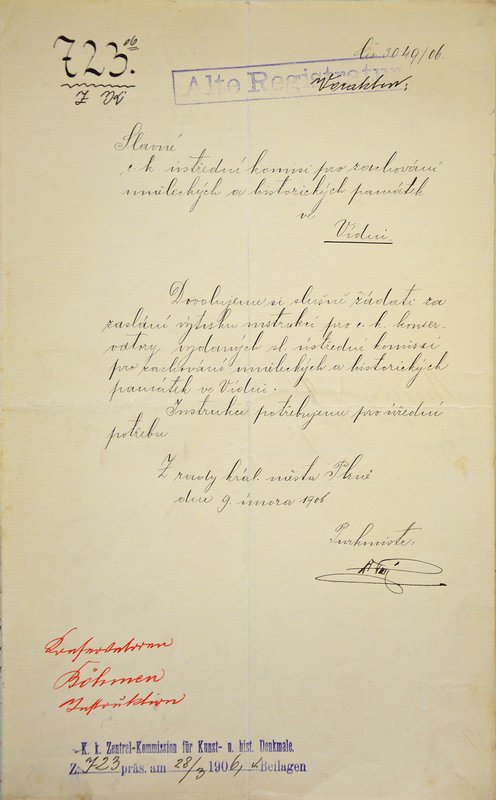 723.06
Z VK
čís 3049/06.
Alte Registratur
Slavné
c. k. ústřední komisi pro zachování
uměleckých a historických památek
ve
Vídni.
Dovolujeme si slušně žádati za
zaslání výtisku instrukcí pro c. k. konser-
vatory vydaných sl. ústřední komissí
pro zachování uměleckých a historických
památek ve Vídni.
Instrukce potřebujeme pro úřední
potřebu.
Z rady král. města Plzně
dne 9. února 1906
Purkmistr:
Konservatoren
Böhmen
Instruktion
K. k. Zentral-Kommission für Kunst- u. hist. Denkmale.
Z. 723 präs. am 28/3 1906, Beilagen